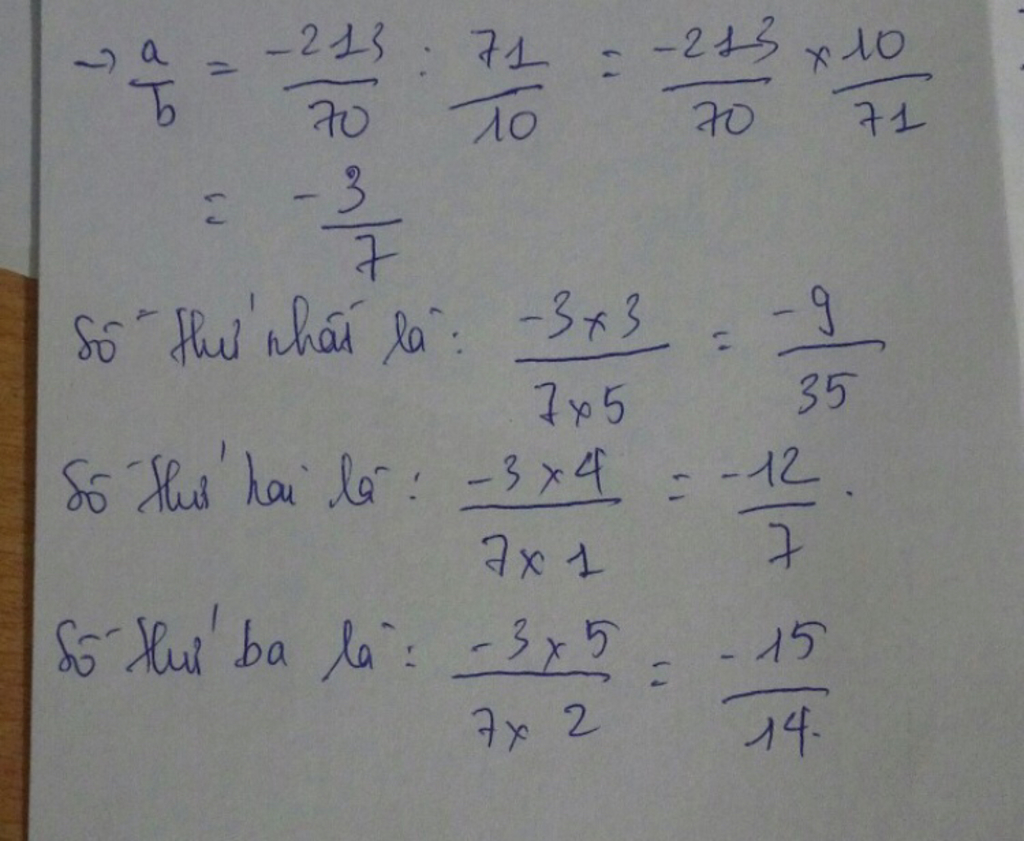 → a/b = -213/70 : 71/10 = -213/70 × 10/71
= -3/7
Số thứ nhất là: -3×3/7×5 = -9/35
Số thứ hai là: -3×4/7×1 = -12/7.
Số thứ ba là: -3×5/7×2 = -15/14.